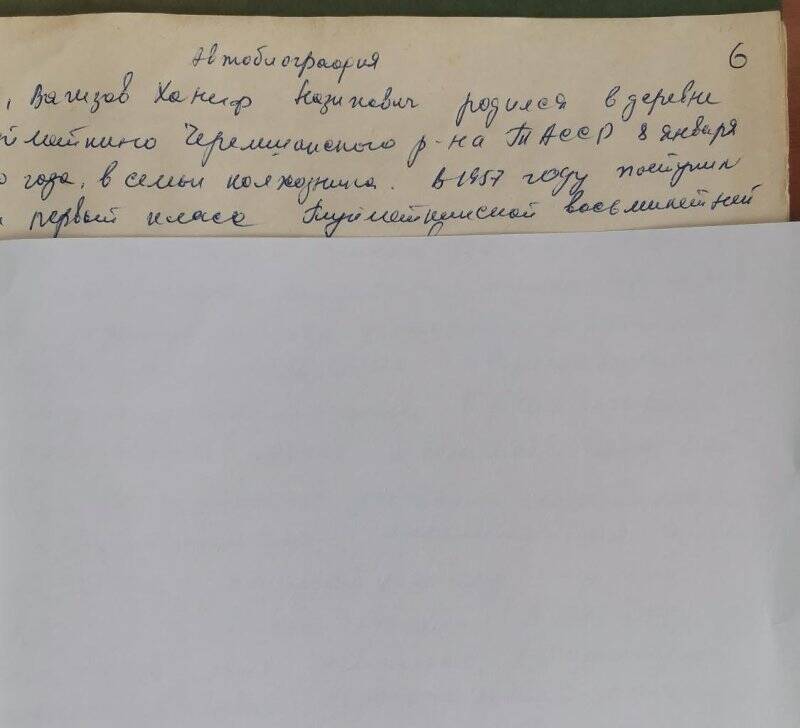 Автобиография 6
, Вагизов Ханиф Назипович родился в деревне
йметкино Черемшанского р-на ТАССР 8 января
0 года, в семьи колхозника. В 1957 году поступил
первый класс Туйметкинской восьмилетней